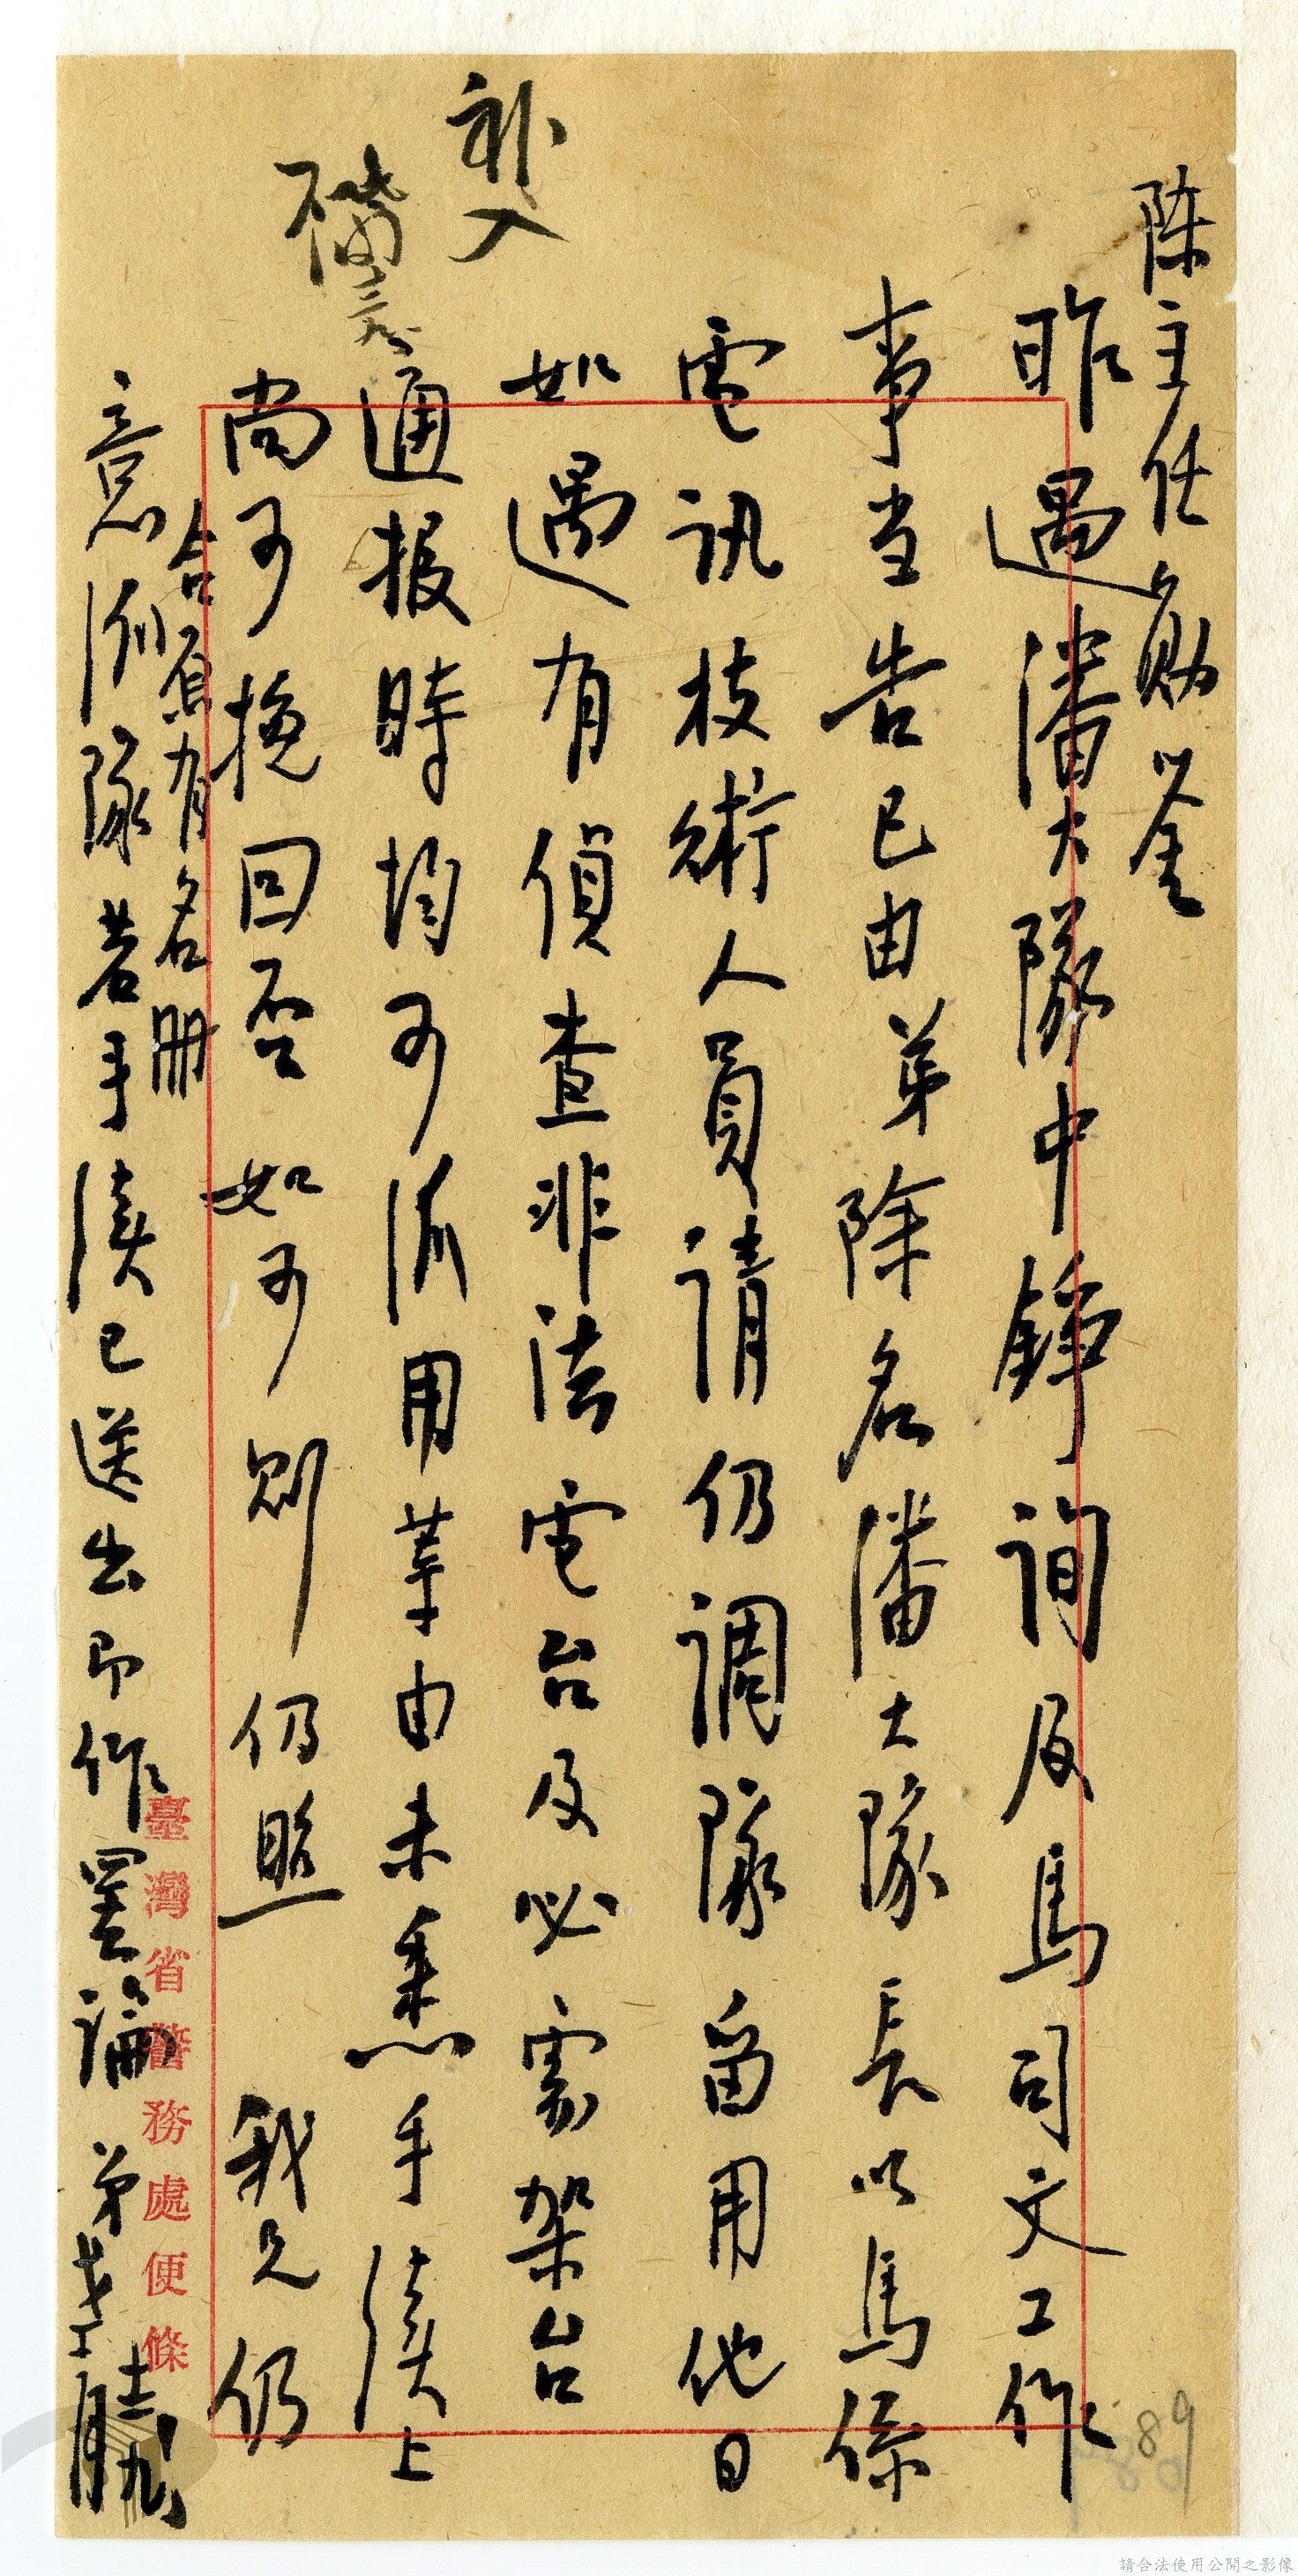 陈主任勛鉴
昨遇潘大隊中錚詢及馬司文工作
事当告已由弟除名潘大隊長以馬係
電訊技術人員请仍調隊留用他日
如遇有偵查非法電台及必需架台
通报時均可派用等由未悉手續上
尚可挽回否如可則仍照 我兄仍
合原有名册
意派隊若手續已送出即作罢論 弟
补入
臺灣省警務處便條
89
請合法使用公開之影像